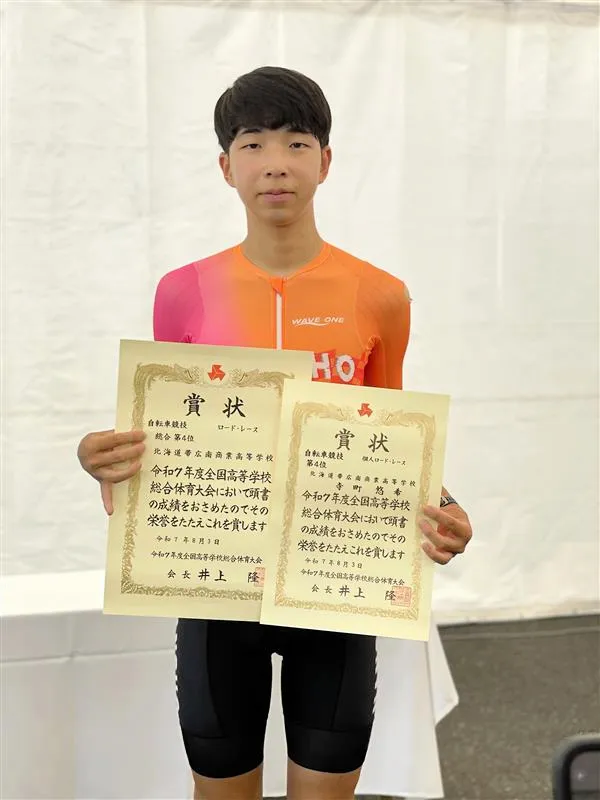 WAVE ONE
HO
賞状
自転車競技 ロード・レース
総合 第4位
北海道帯広南商業高等学校
令和7年度全国高等学校
総合体育大会において頭書
の成績をおさめたのでその
栄誉をたたえこれを賞します
令和7年8月3日
令和7年度全国高等学校総合体育大会
会長 井上 隆
賞状
自転車競技 個人ロード・レース
第4位
北海道帯広南商業高等学校
寺町 悠希
令和7年度全国高等学校
総合体育大会において頭書
の成績をおさめたのでその
栄誉をたたえこれを賞します
令和7年8月3日
令和7年度全国高等学校総合体育大会
会長 井上 隆